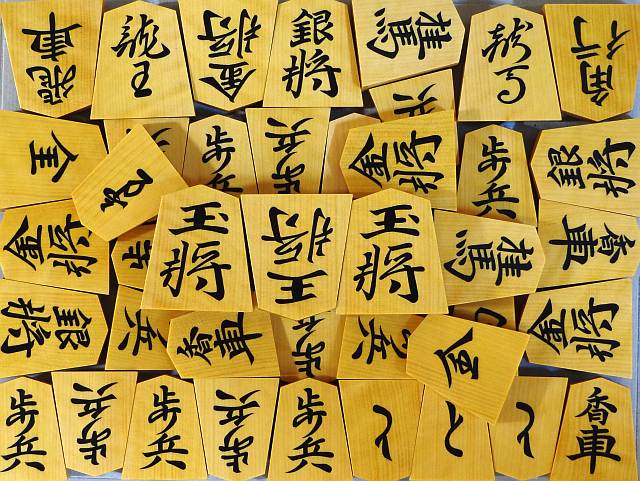 飛車
龍王
金将
銀将
桂馬
龍馬
角行
全
歩兵
歩兵
金将
歩兵
銀将
金将
歩
玉将
王将
玉将
桂馬
香車
銀将
兵
香車
歩
兵
全
金将
歩兵
歩兵
歩兵
歩兵
歩兵
と
と
と
香車